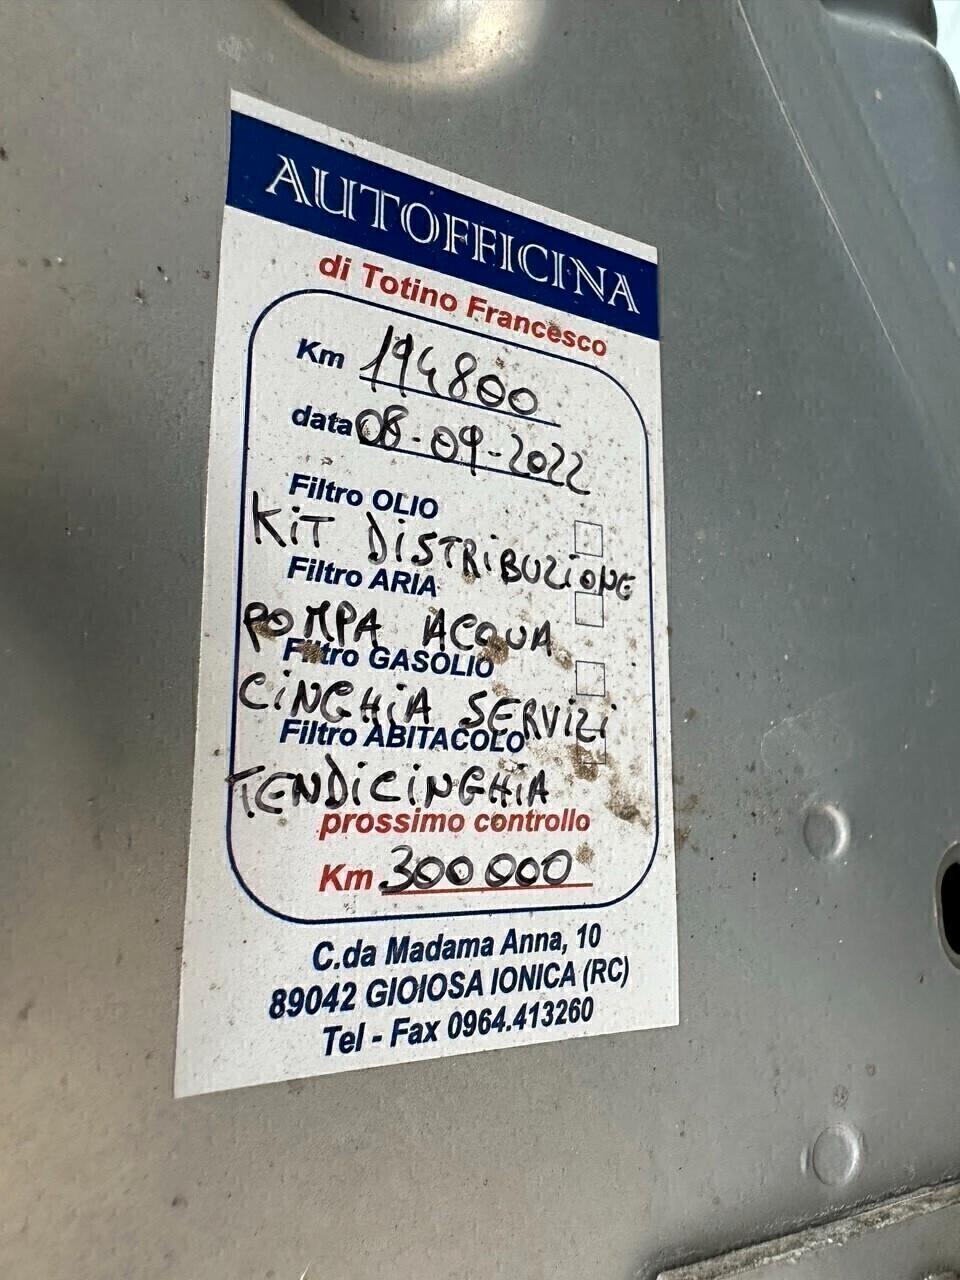 AUTOFFICINA
di Totino Francesco
Km 194800
data 08-09-2022
Filtro OLIO
KiT DiSTRiBUZiONE
Filtro ARIA
POMPA ACQUA
Filtro GASOLIO
CiNGHiA SERVIZi
Filtro ABITACOLO
TENDiCiNGHiA
prossimo controllo
Km 300000
C.da Madama Anna, 10
89042 GIOIOSA IONICA (RC)
Tel - Fax 0964.413260